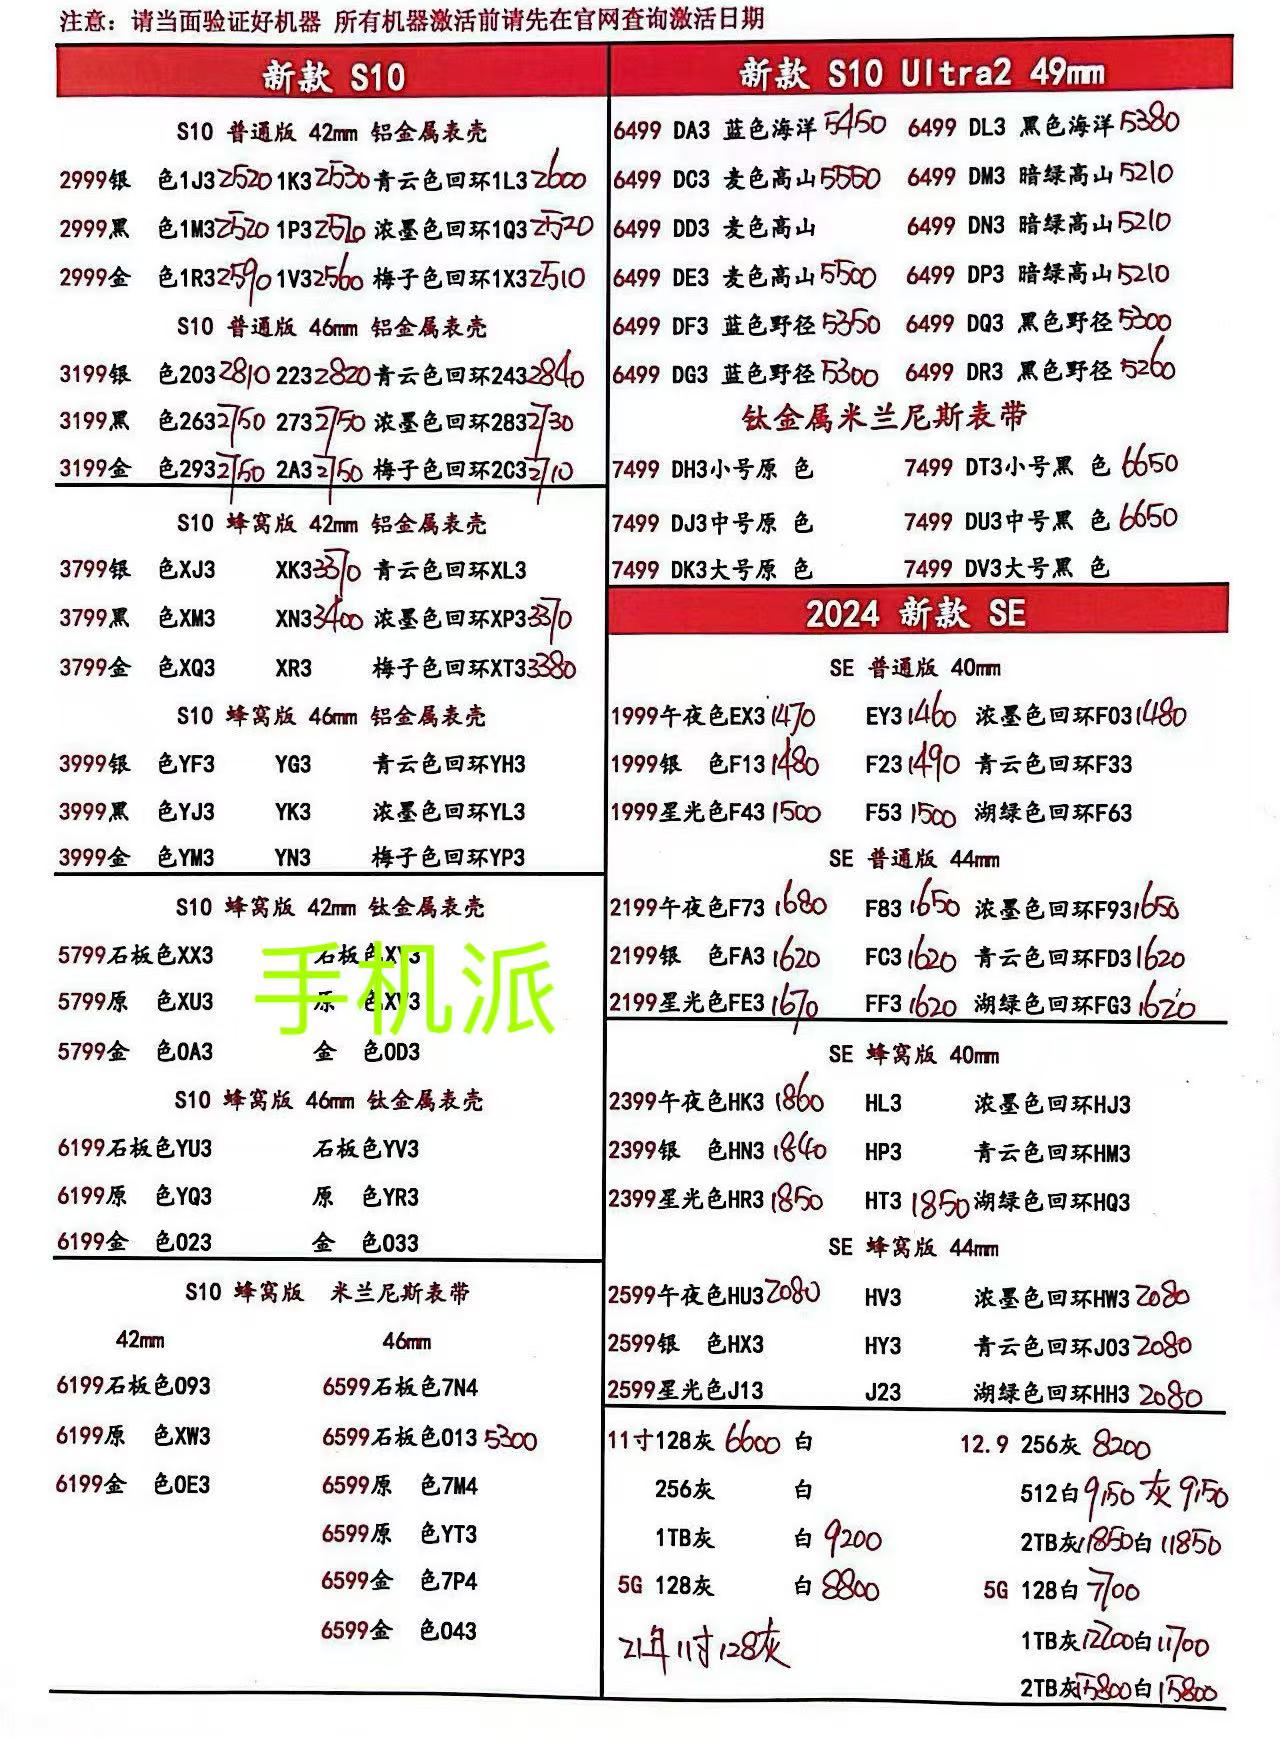 注意：请当面验证好机器 所有机器激活前请先在官网查询激活日期
新款 S10
S10 普通版 42mm 铝金属表壳
2999银 色1J3 2520 1K3 2530 青云色回环1L3 2600
2999黑 色1M3 2520 1P3 2510 浓墨色回环1Q3 2520
2999金 色1R3 2590 1V3 2560 梅子色回环1X3 2510
S10 普通版 46mm 铝金属表壳
3199银 色203 2810 223 2820 青云色回环243 2840
3199黑 色263 2750 273 2750 浓墨色回环283 2730
3199金 色293 2750 2A3 2750 梅子色回环2C3 2710
S10 蜂窝版 42mm 铝金属表壳
3799银 色XJ3 XK3 3370 青云色回环XL3
3799黑 色XM3 XN3 3400 浓墨色回环XP3 3370
3799金 色XQ3 XR3 梅子色回环XT3 3380
S10 蜂窝版 46mm 铝金属表壳
3999银 色YF3 YG3 青云色回环YH3
3999黑 色YJ3 YK3 浓墨色回环YL3
3999金 色YM3 YN3 梅子色回环YP3
S10 蜂窝版 42mm 钛金属表壳
5799石板色XX3 石板色XY3
5799原 色XU3 原 色XV3
手机派
5799金 色0A3 金 色0D3
S10 蜂窝版 46mm 钛金属表壳
6199石板色YU3 石板色YV3
6199原 色YQ3 原 色YR3
6199金 色023 金 色033
S10 蜂窝版 米兰尼斯表带
42mm 46mm
6199石板色093 6599石板色7N4
6199原 色XW3 6599石板色013 5300
6199金 色0E3 6599原 色7M4
6599原 色YT3
6599金 色7P4
6599金 色043
新款 S10 Ultra2 49mm
6499 DA3 蓝色海洋 5450 6499 DL3 黑色海洋 5380
6499 DC3 麦色高山 5550 6499 DM3 暗绿高山 5210
6499 DD3 麦色高山 6499 DN3 暗绿高山 5210
6499 DE3 麦色高山 5500 6499 DP3 暗绿高山 5210
6499 DF3 蓝色野径 5350 6499 DQ3 黑色野径 5300
6499 DG3 蓝色野径 5300 6499 DR3 黑色野径 5260
钛金属米兰尼斯表带
7499 DH3小号原 色 7499 DT3小号黑 色 6650
7499 DJ3中号原 色 7499 DU3中号黑 色 6650
7499 DK3大号原 色 7499 DV3大号黑 色
2024 新款 SE
SE 普通版 40mm
1999午夜色EX3 1470 EY3 1460 浓墨色回环F03 1480
1999银 色F13 1480 F23 1490 青云色回环F33
1999星光色F43 1500 F53 1500 湖绿色回环F63
SE 普通版 44mm
2199午夜色F73 1680 F83 1650 浓墨色回环F93 1650
2199银 色FA3 1620 FC3 1620 青云色回环FD3 1620
2199星光色FE3 1670 FF3 1620 湖绿色回环FG3 1620
SE 蜂窝版 40mm
2399午夜色HK3 1860 HL3 浓墨色回环HJ3
2399银 色HN3 1840 HP3 青云色回环HM3
2399星光色HR3 1850 HT3 1850 湖绿色回环HQ3
SE 蜂窝版 44mm
2599午夜色HU3 2080 HV3 浓墨色回环HW3 2080
2599银 色HX3 HY3 青云色回环J03 2080
2599星光色J13 J23 湖绿色回环HH3 2080
11寸128灰 6600 白 12.9 256灰 8200
256灰 白 512白 9150 灰 9150
1TB灰 白 9200 2TB灰 11850 白 11850
5G 128灰 白 8800 5G 128白 7700
21年 11寸 128灰 1TB灰 12700 白 11700
2TB灰 15800 白 15800